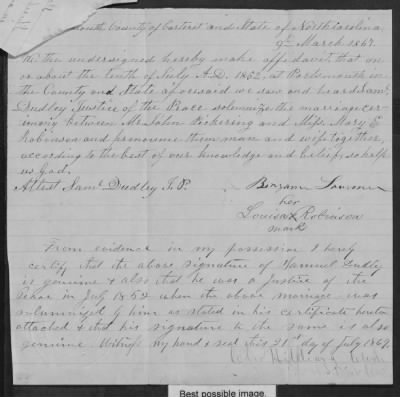 mouth County of Carteret and State of North Carolina
9th March 1867.
We the undersigned hereby make affidavit that on
or about the tenth of July A.D. 1852, at Portsmouth in
the County and State aforesaid we saw and heard Saml
Dudley, Justice of the Peace solemnize the marriage cer-
imony between Mr John Pickering and Miss Mary E
Robinson and pronounce them man and wife together,
according to the best of our knowledge and belief, so help
us God.
Attest Saml Dudley J.P.
her
Louisa X Robinson
mark
From evidence in my possession I hereby
certify that the above signature of Samuel Dudley
is genuine & also that he was a Justice of the
Peace in July 1852 when the above marriage was
solemnized by him as stated in his certificate hereto
attached & that his signature to the same is also
genuine. Witness my hand & seal this 21st day of July 1869.
Best possible image.